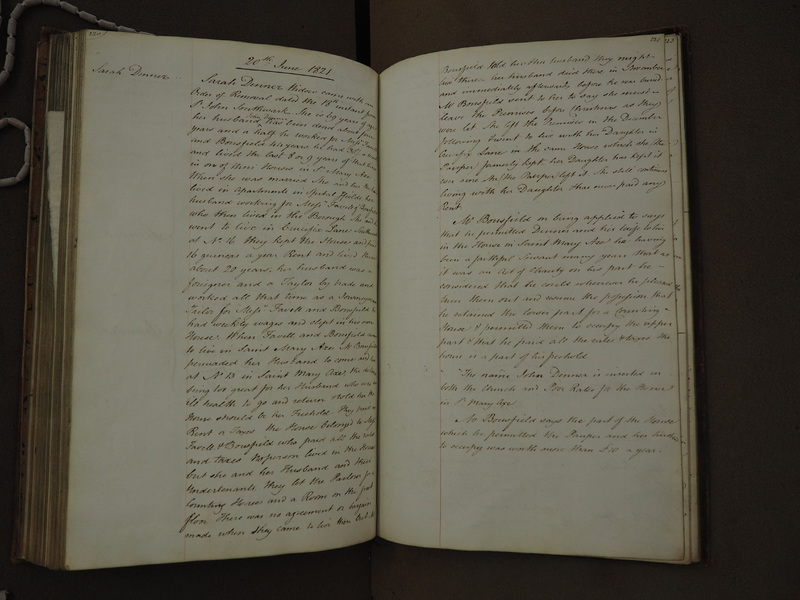 20th June 1821
Sarah Donner
Sarah Donner Widow came with an
Order of Removal dated the 18th instant from
St John Southwark She is 69 years of age
her husband has been dead about four
years and a half he worked for Messrs Favell
and Bousfield
and lived the last 8 or 9 years of that time
in one of their Houses in St Mary Axe
When she was married she and her husband
lived in apartments in Spital fields her
husband working for Messrs Favell & Bousfield
who then lived in the Borough She and he
went to live in Crucifix Lane Southwark
at No. 16 they kept the House and paid
16 guineas a year Rent and lived there
about 20 years; her husband was a
foreigner and a Taylor by trade and
worked all that time as a Journeyman
Tailor for Messrs Favell and Bousfield he
had weekly wages and slept in his own
House. When Favell and Bousfield came
to live in Saint Mary Axe Mr Bousfield
persuaded her Husband to come and live
at No 13 in Saint Mary Axe, the distance
being too great for her Husband who was in
ill health to go and return & told her the
House should be her Freehold They paid no
Rent or Taxes the House belonged to Messrs
Favell & Bousfield who paid all the rates
and taxes No person lived in the House
but she and her Husband and their
Undertenants they let the Parlour for a
Counting House and a Room on the first
floor There was no agreement or bargain
made when they came to live there but Mr
Bousfield told her then husband they might
live there her husband died there in November
and immediately afterwards before he was buried
Mr Bousfield sent to her to say she must
leave the Premises before Christmas as they
were let She left the Premises in the December
following & went to live with her Daughter in
Crucifix Lane in the same House which she the
Pauper formerly kept her Daughter has kept it
ever since she the Pauper left it. She still continues
living with her Daughter & has never paid any
Rent
Mr Bousfield on being applied to says
that he permitted Donner and his wife to live
in the House in Saint Mary Axe he having
been a faithful Servant many years that as
it was an Act of Charity on his part he
considered that he could whenever he pleased
turn them out and resume the possession that
he retained the lower part for a Counting
House & permitted them to occupy the upper
part & that he paid all the rates & taxes the
house is a part of his freehold
The name John Donner is inserted in
both the Church and Poor Rates for the House
in St Mary Axe
Mr Bousfield says the part of the House
which he permitted the Pauper and her husband
to occupy was worth more than £10 a year.